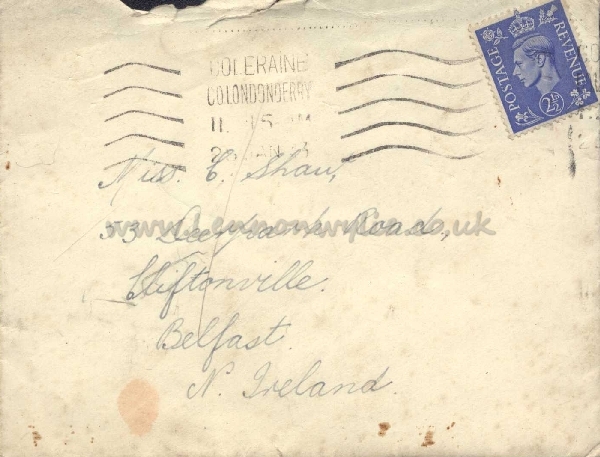 COLERAINE
CO LONDONDERRY
11. 15 AM
JAN
POSTAGE REVENUE
2½D
Miss. C. Shaw,
53 Road,
Cliftonville.
Belfast.
N. Ireland.